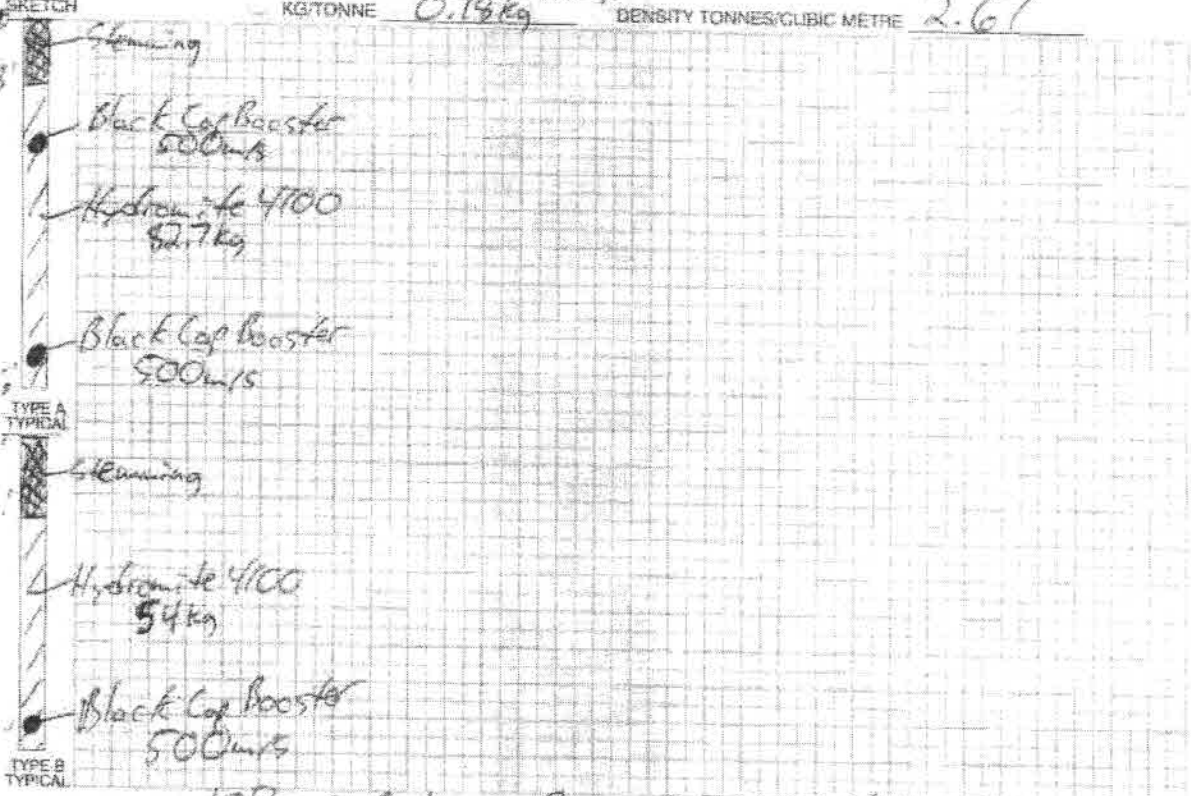 SKETCH
KG/TONNE 0.18 kg DENSITY TONNES/CUBIC METRE 2.67
Stemming
Black Cap Booster
500m/s
Hydromite 4100
82.7 kg
Black Cap Booster
500m/s
TYPE A
TYPICAL
Stemming
Hydromite 4100
54 kg
Black Cap Booster
500m/s
TYPE B
TYPICAL